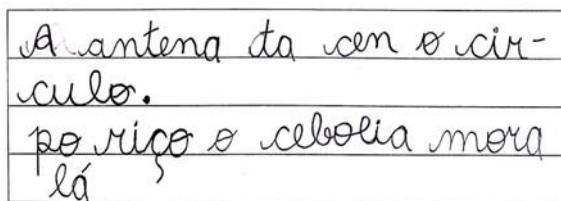 A antena ta cen o cir-
culo.
po riço o cebolia mora
lá